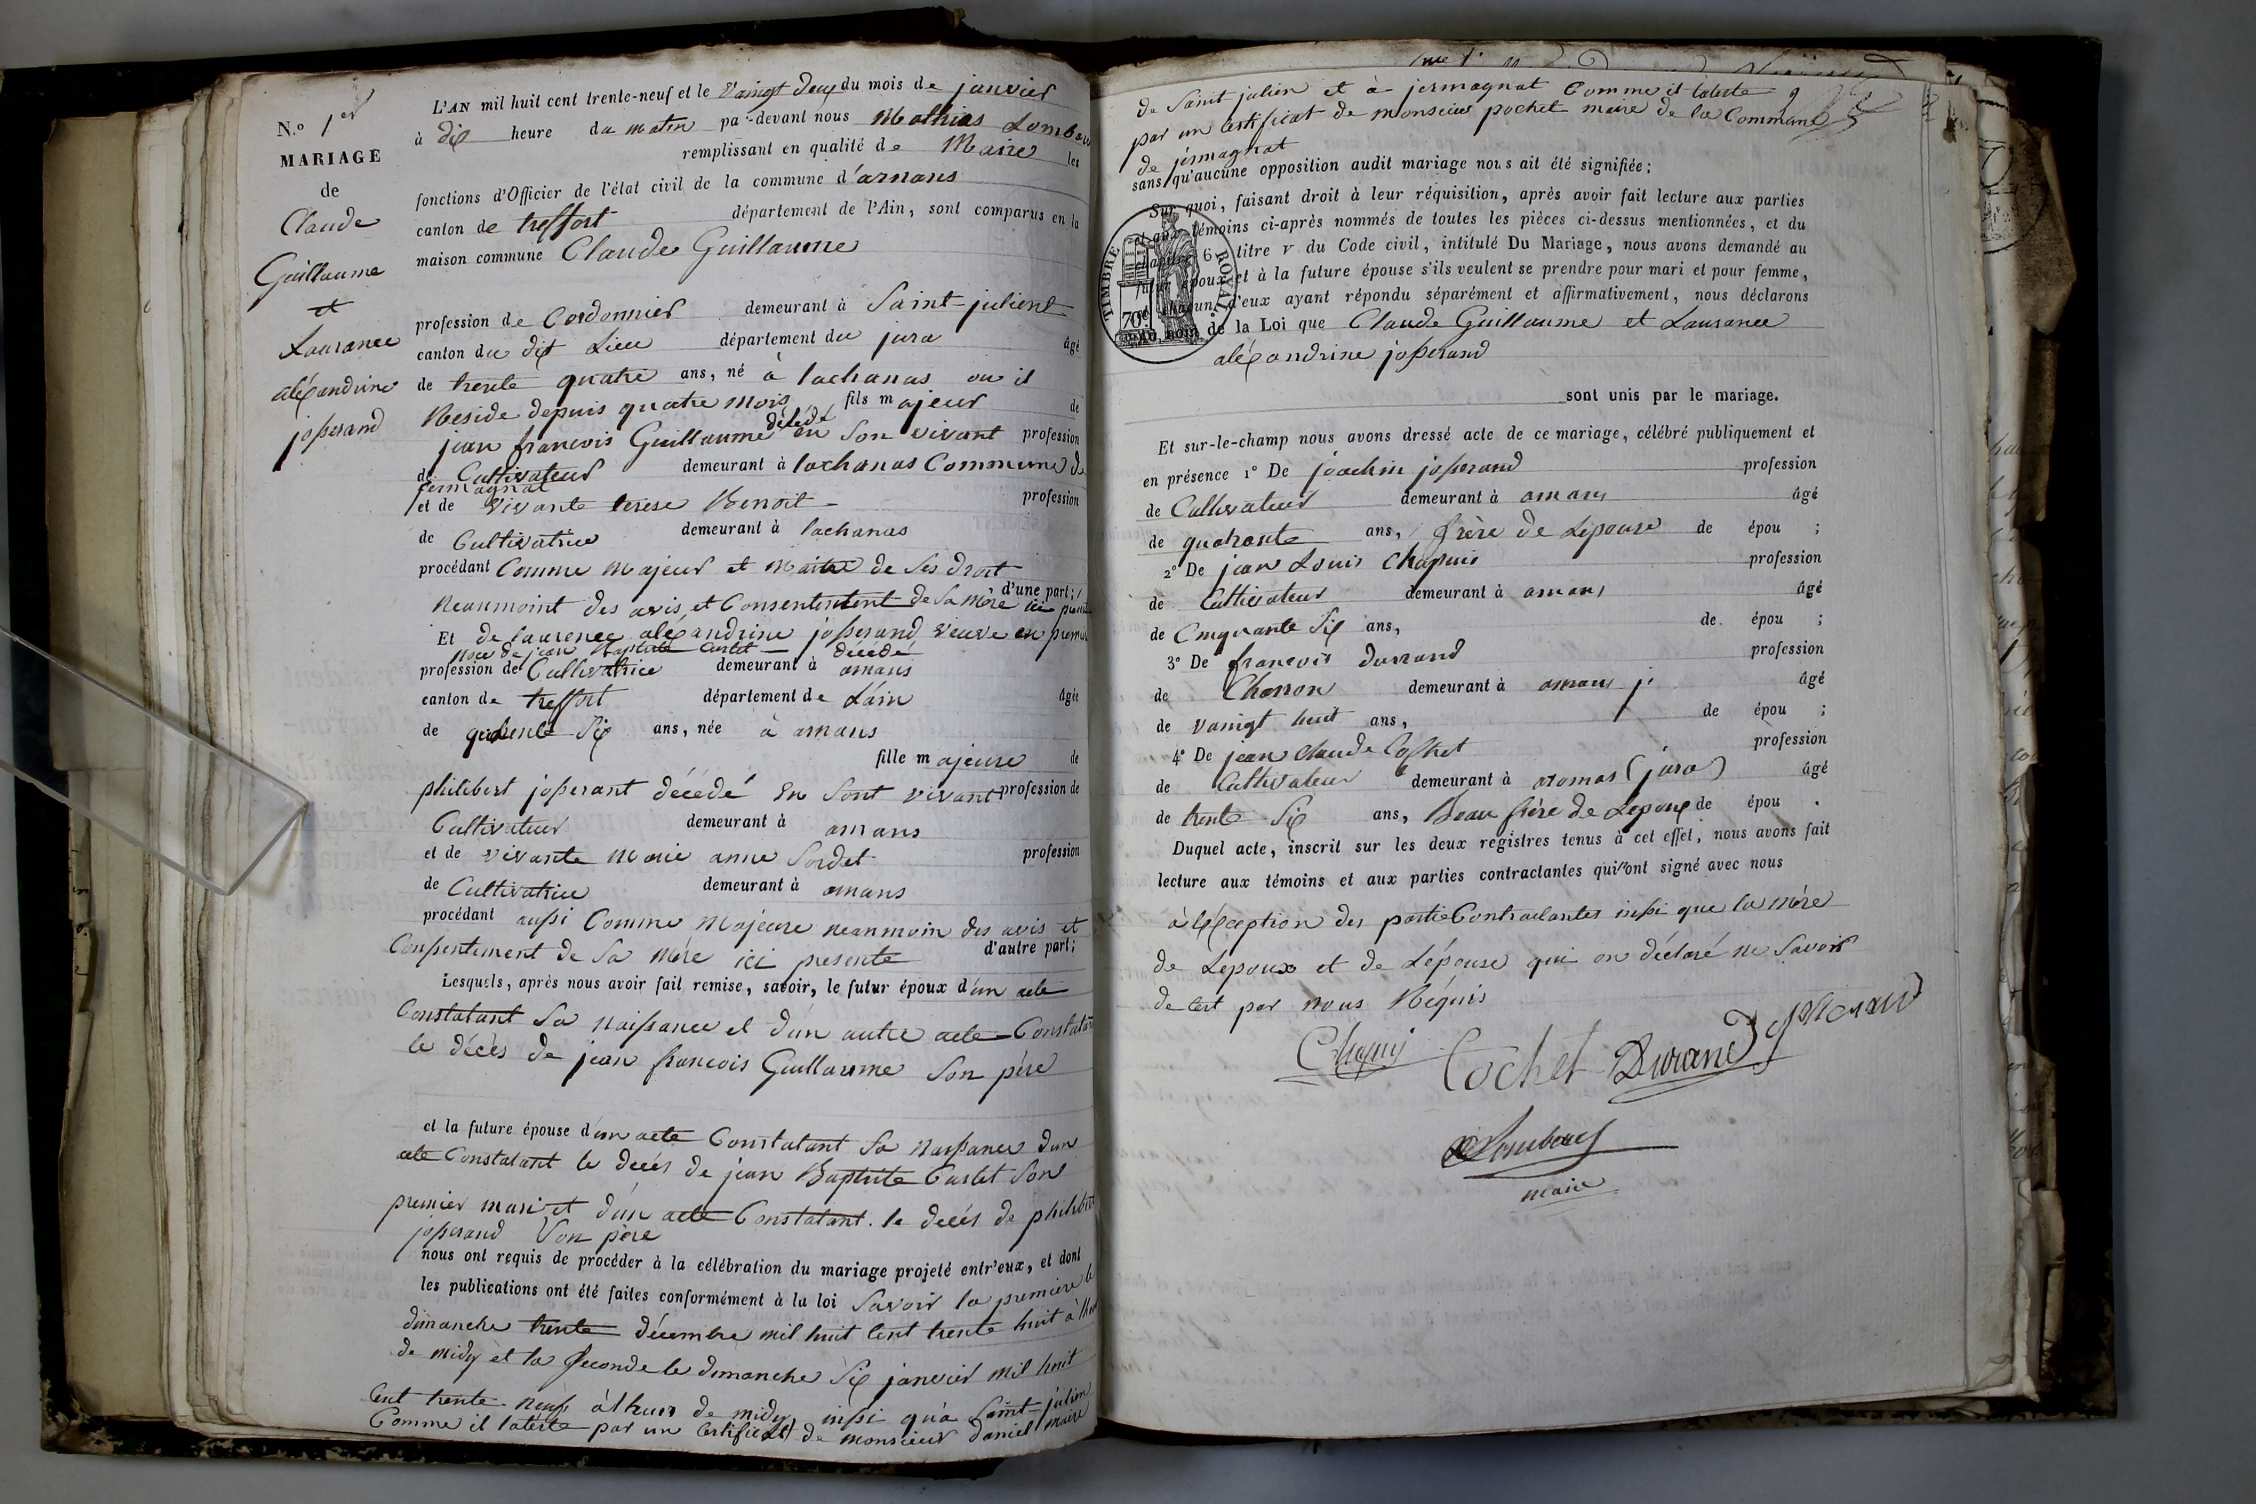 N.o 1er
MARIAGE
de
Claude
Guillaume
et
Laurance
aléxandrine
josserand
L'AN mil huit cent trente-neuf et le vaingt deux du mois de janvier
à dix heure du matin par-devant nous Mathias Lombard
remplissant en qualité de Maire les
fonctions d'Officier de l'état civil de la commune d'arnans
canton de treffort département de l'Ain, sont comparus en la
maison commune Claude Guillaume
profession de Cordonnier demeurant à Saint-julient
canton du dit Lieu département du jura âgé
de trente quatre ans, né à lachanas ou il
Reside depuis quatre mois fils majeur de
jean francois Guillaume décédé en son vivant profession
de Cultivateur demeurant à lachanas Commune de
germagnat
et de vivante terese Benoit profession
de Cultivatrice demeurant à lachanas
procédant Comme majeur et Maitre de ses droit
d'une part;
neanmoint des avis et Consentement de sa mère ici presente
Et de laurence aléxandrine josserand veuve en premier
noce de jean Baptiste Castet décédé
profession de Cultivatrice demeurant à arnans
canton de treffort département de L'ain âgée
de quarente six ans, née à arnans
fille majeure de
philibert josserant décédé en sont vivant profession de
Cultivateur demeurant à arnans
et de vivante marie anne Sordet profession
de Cultivatrice demeurant à arnans
procédant aussi Comme Majeure neanmoin des avis et
Conssentement de sa mére ici presente d'autre part;
Lesquels, après nous avoir fait remise, savoir, le futur époux d'un acte
Constatant sa naissance et d'un autre acte Constatant
le décès de jean francois Guillaume son père
et la future épouse d'un acte Constatant sa naissance d'un
acte Constatant le decés de jean Baptiste Castet son
premier mari et d'un acte Constatant le decés de philibert
josserand son père
nous ont requis de procéder à la célébration du mariage projeté entr'eux, et dont
les publications ont été faites conformément à la loi savoir la premiere le
dimanche trente décembre mil huit cent trente huit à lheur
de midy et la seconde le dimanche six janvier mil huit
cent trente neuf à lheur de midy inssi qu'à saint-julien
Comme il lateste par un certificat de monsieur daniel maire
de saint julien et à jermagnat Comme il lateste
par un certificat de monsieur pochet maire de la Commune
de jermagnat
sans qu'aucune opposition audit mariage nous ait été signifiée;
Sur quoi, faisant droit à leur réquisition, après avoir fait lecture aux parties
et aux témoins ci-après nommés de toutes les pièces ci-dessus mentionnées, et du
chapitre 6 titre v du Code civil, intitulé Du Mariage, nous avons demandé au
futur époux et à la future épouse s'ils veulent se prendre pour mari et pour femme,
et chacun d'eux ayant répondu séparément et affirmativement, nous déclarons
au nom de la Loi que Claude Guillaume et Laurance
aléxandrine josserand
TIMBRE ROYAL
70c
sont unis par le mariage.
Et sur-le-champ nous avons dressé acte de ce mariage, célébré publiquement et
en présence 1o De joachin josserand profession
de Cultivateur demeurant à arnans âgé
de quarante ans, frère de Lepouse de épou ;
2o De jean Louis Chapuis profession
de Cultivateur demeurant à arnans âgé
de Cinquante six ans, de épou ;
3o De francois durrand profession
de Charron demeurant à arnans âgé
de vaingt huit ans, de épou ;
4o De jean Claude Cochet profession
de Cultivateur demeurant à aromas (jura) âgé
de trente six ans, Beau frère de Lepoux de épou .
Duquel acte, inscrit sur les deux registres tenus à cet effet, nous avons fait
lecture aux témoins et aux parties contractantes qui ont signé avec nous
à léxception des partie Contractantes inssi que la mére
de Lepoux et de Lépouse qui on déclaré ne savoir
de cest par nous Réquis
Chapuis Cochet Durand josserand
Lombard
maire